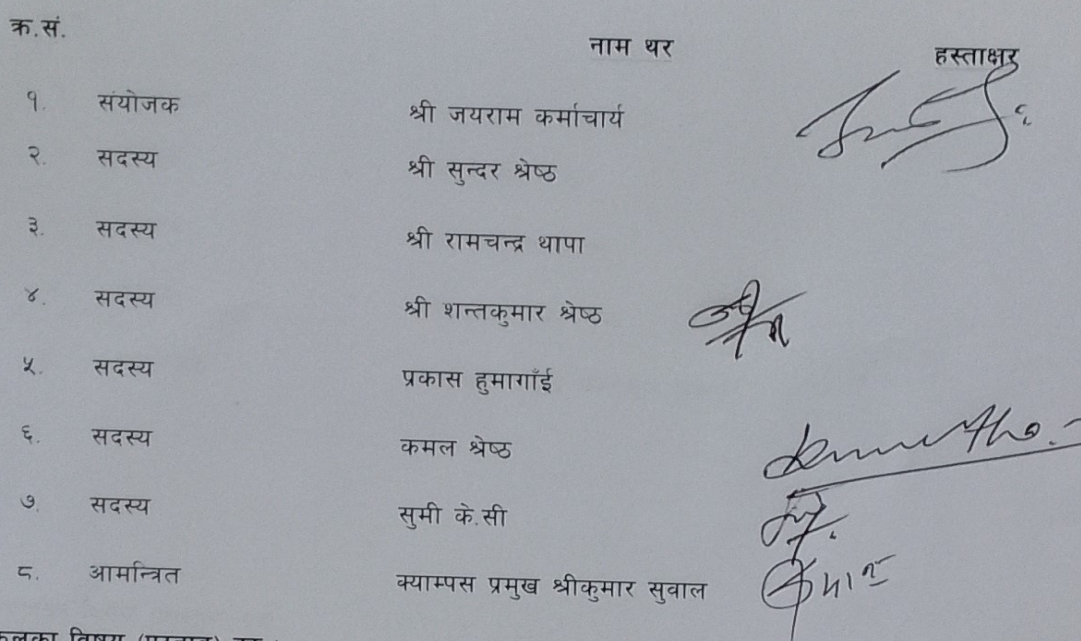 क्र.सं. नाम थर हस्ताक्षर
१. संयोजक श्री जयराम कर्माचार्य
२. सदस्य श्री सुन्दर श्रेष्ठ
३. सदस्य श्री रामचन्द्र थापा
४. सदस्य श्री शन्तकुमार श्रेष्ठ
५. सदस्य प्रकास हुमागाँई
६. सदस्य कमल श्रेष्ठ
७. सदस्य सुमी के.सी
८. आमन्त्रित क्याम्पस प्रमुख श्रीकुमार सुवाल